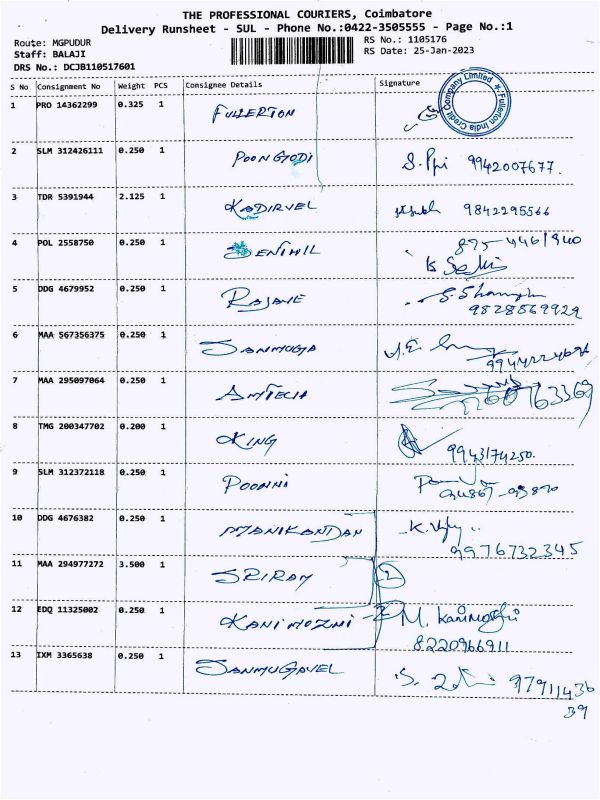 THE PROFESSIONAL COURIERS, Coimbatore
Delivery Runsheet - SUL - Phone No.:0422-3505555 - Page No.:1
Route: MGPUDUR RS No.: 1105176
Staff: BALAJI RS Date: 25-Jan-2023
DRS No.: DCJB110517601
S No Consignment No Weight PCS Consignee Details Signature
1 PRO 14362299 0.325 1 FULLERTON Fullerton India Credit Company Limited
2 SLM 312426111 0.250 1 POONGODI 9942007677.
3 TDR 5391944 2.125 1 KADIRVEL 9842295566
4 POL 2558750 0.250 1 SENTHIL
5 DDG 4679952 0.250 1 9828569929
6 MAA 567356375 0.250 1 SANMUGA
7 MAA 295097064 0.250 1 AMTECH
8 TMG 200347702 0.200 1 KING 9943174250.
9 SLM 312372118 0.250 1 POONNI
10 DDG 4676382 0.250 1 MANIKANDAN
9976732345
11 MAA 294977272 3.500 1 SRIRAM 2
12 EDQ 11325002 0.250 1 KANIMOZHI M. Kanimozhi
8220966911
13 IXM 3365638 0.250 1 SANMUGAVEL S. 97911436
39